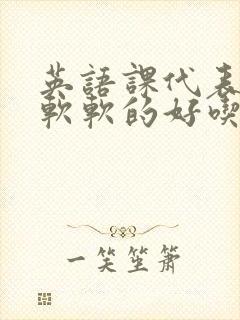 英語課代表
軟軟的好喫
一笑笙簫